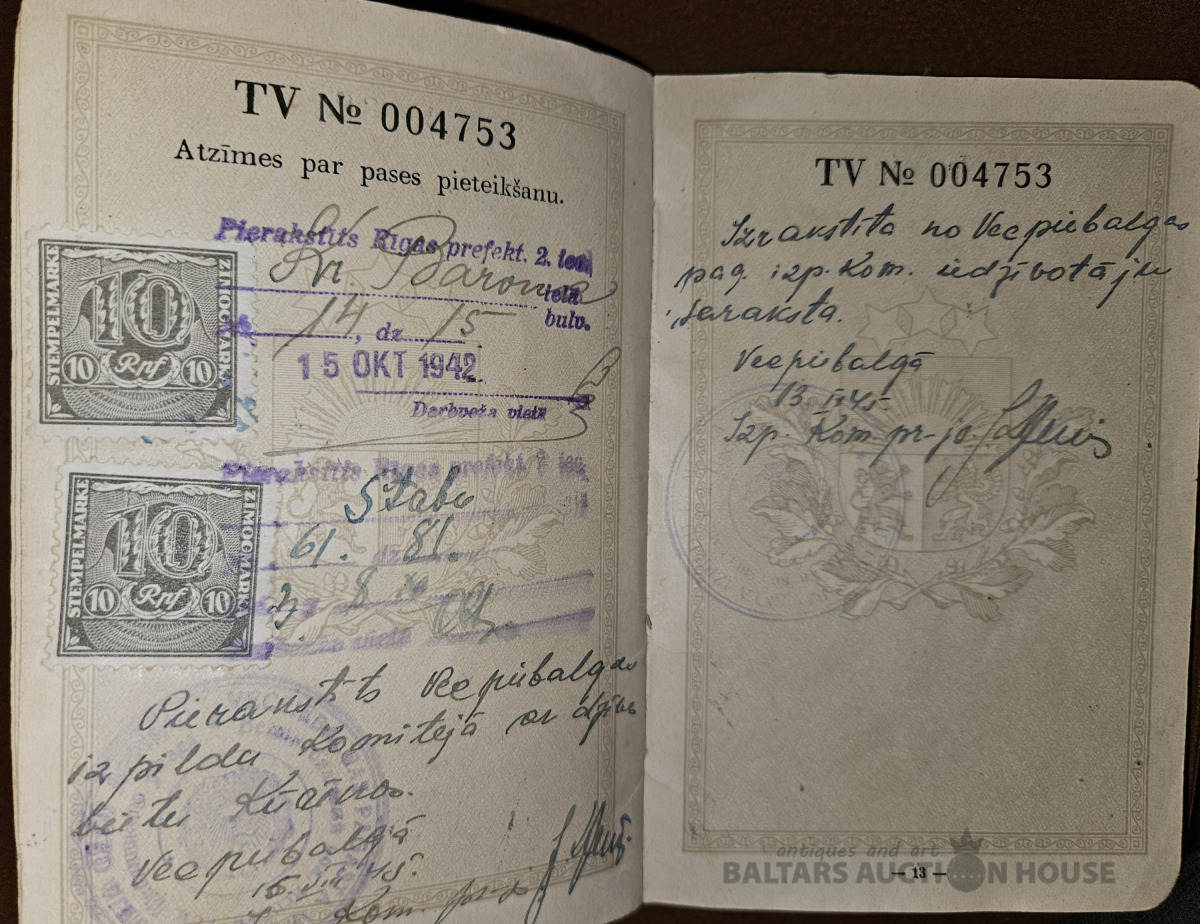 TV № 004753
Atzīmes par pases pieteikšanu.
Pierakstīts Rīgas prefekt. 2. iec.
Kr Barona
ielā
bulv.
14, dz. 15
15 OKT 1942
Darbveža vietā
STEMPELMARKE
10
ZIMOGMARKA
10 Rnf 10
Pierakstīts Rīgas prefekt. 2. iec.
Stabu
61. dz 81.
8
vietā
STEMPELMARKE
10
ZIMOGMARKA
10 Rnf 10
Pierakstīts Vecpiebalgas
izpildu Komitejā ar dzīves
vietu
Vecpiebalgā
15. VIII 45.
Kom. pr-js
TV № 004753
Izrakstīta no Vecpiebalgas
pag. izp. Kom. iedzīvotāju
saraksta.
Vecpiebalgā
13 45.
Izp. Kom pr-js
antiques and art
BALTARS AUCTION HOUSE
— 13 —